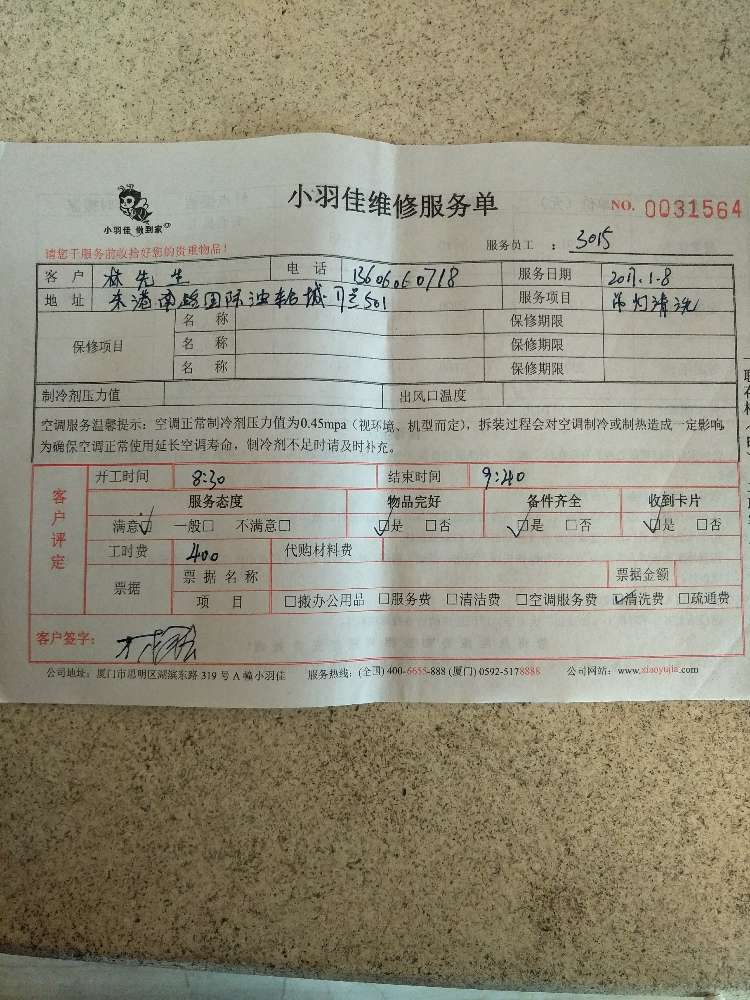 小羽佳维修服务单
NO. 0031564
小羽佳 做到家
请您于服务前收拾好您的贵重物品!
服务员工 : 3015
客户 林先生 电话 13606060718 服务日期 2017.1.8
地址 东港南路国际游轮城 501 服务项目 吊灯清洗
保修项目
名称 保修期限
名称 保修期限
名称 保修期限
制冷剂压力值 出风口温度
空调服务温馨提示：空调正常制冷剂压力值为0.45mpa（视环境、机型而定），拆装过程会对空调制冷或制热造成一定影响,
为确保空调正常使用延长空调寿命，制冷剂不足时请及时补充。
客户评定
开工时间 8:30 结束时间 9:40
服务态度 物品完好 备件齐全 收到卡片
满意☑ 一般□ 不满意□ ☑是 □否 ☑是 □否 ☑是 □否
工时费 400 代购材料费
票据 票据名称 票据金额
项目 □搬办公用品 □服务费 □清洁费 □空调服务费 ☑清洗费 □疏通费
客户签字：
公司地址：厦门市思明区湖滨东路 319 号 A 幢小羽佳 服务热线：(全国) 400-6655-888 (厦门) 0592-5178888 公司网站：www.xiaoyujia.com